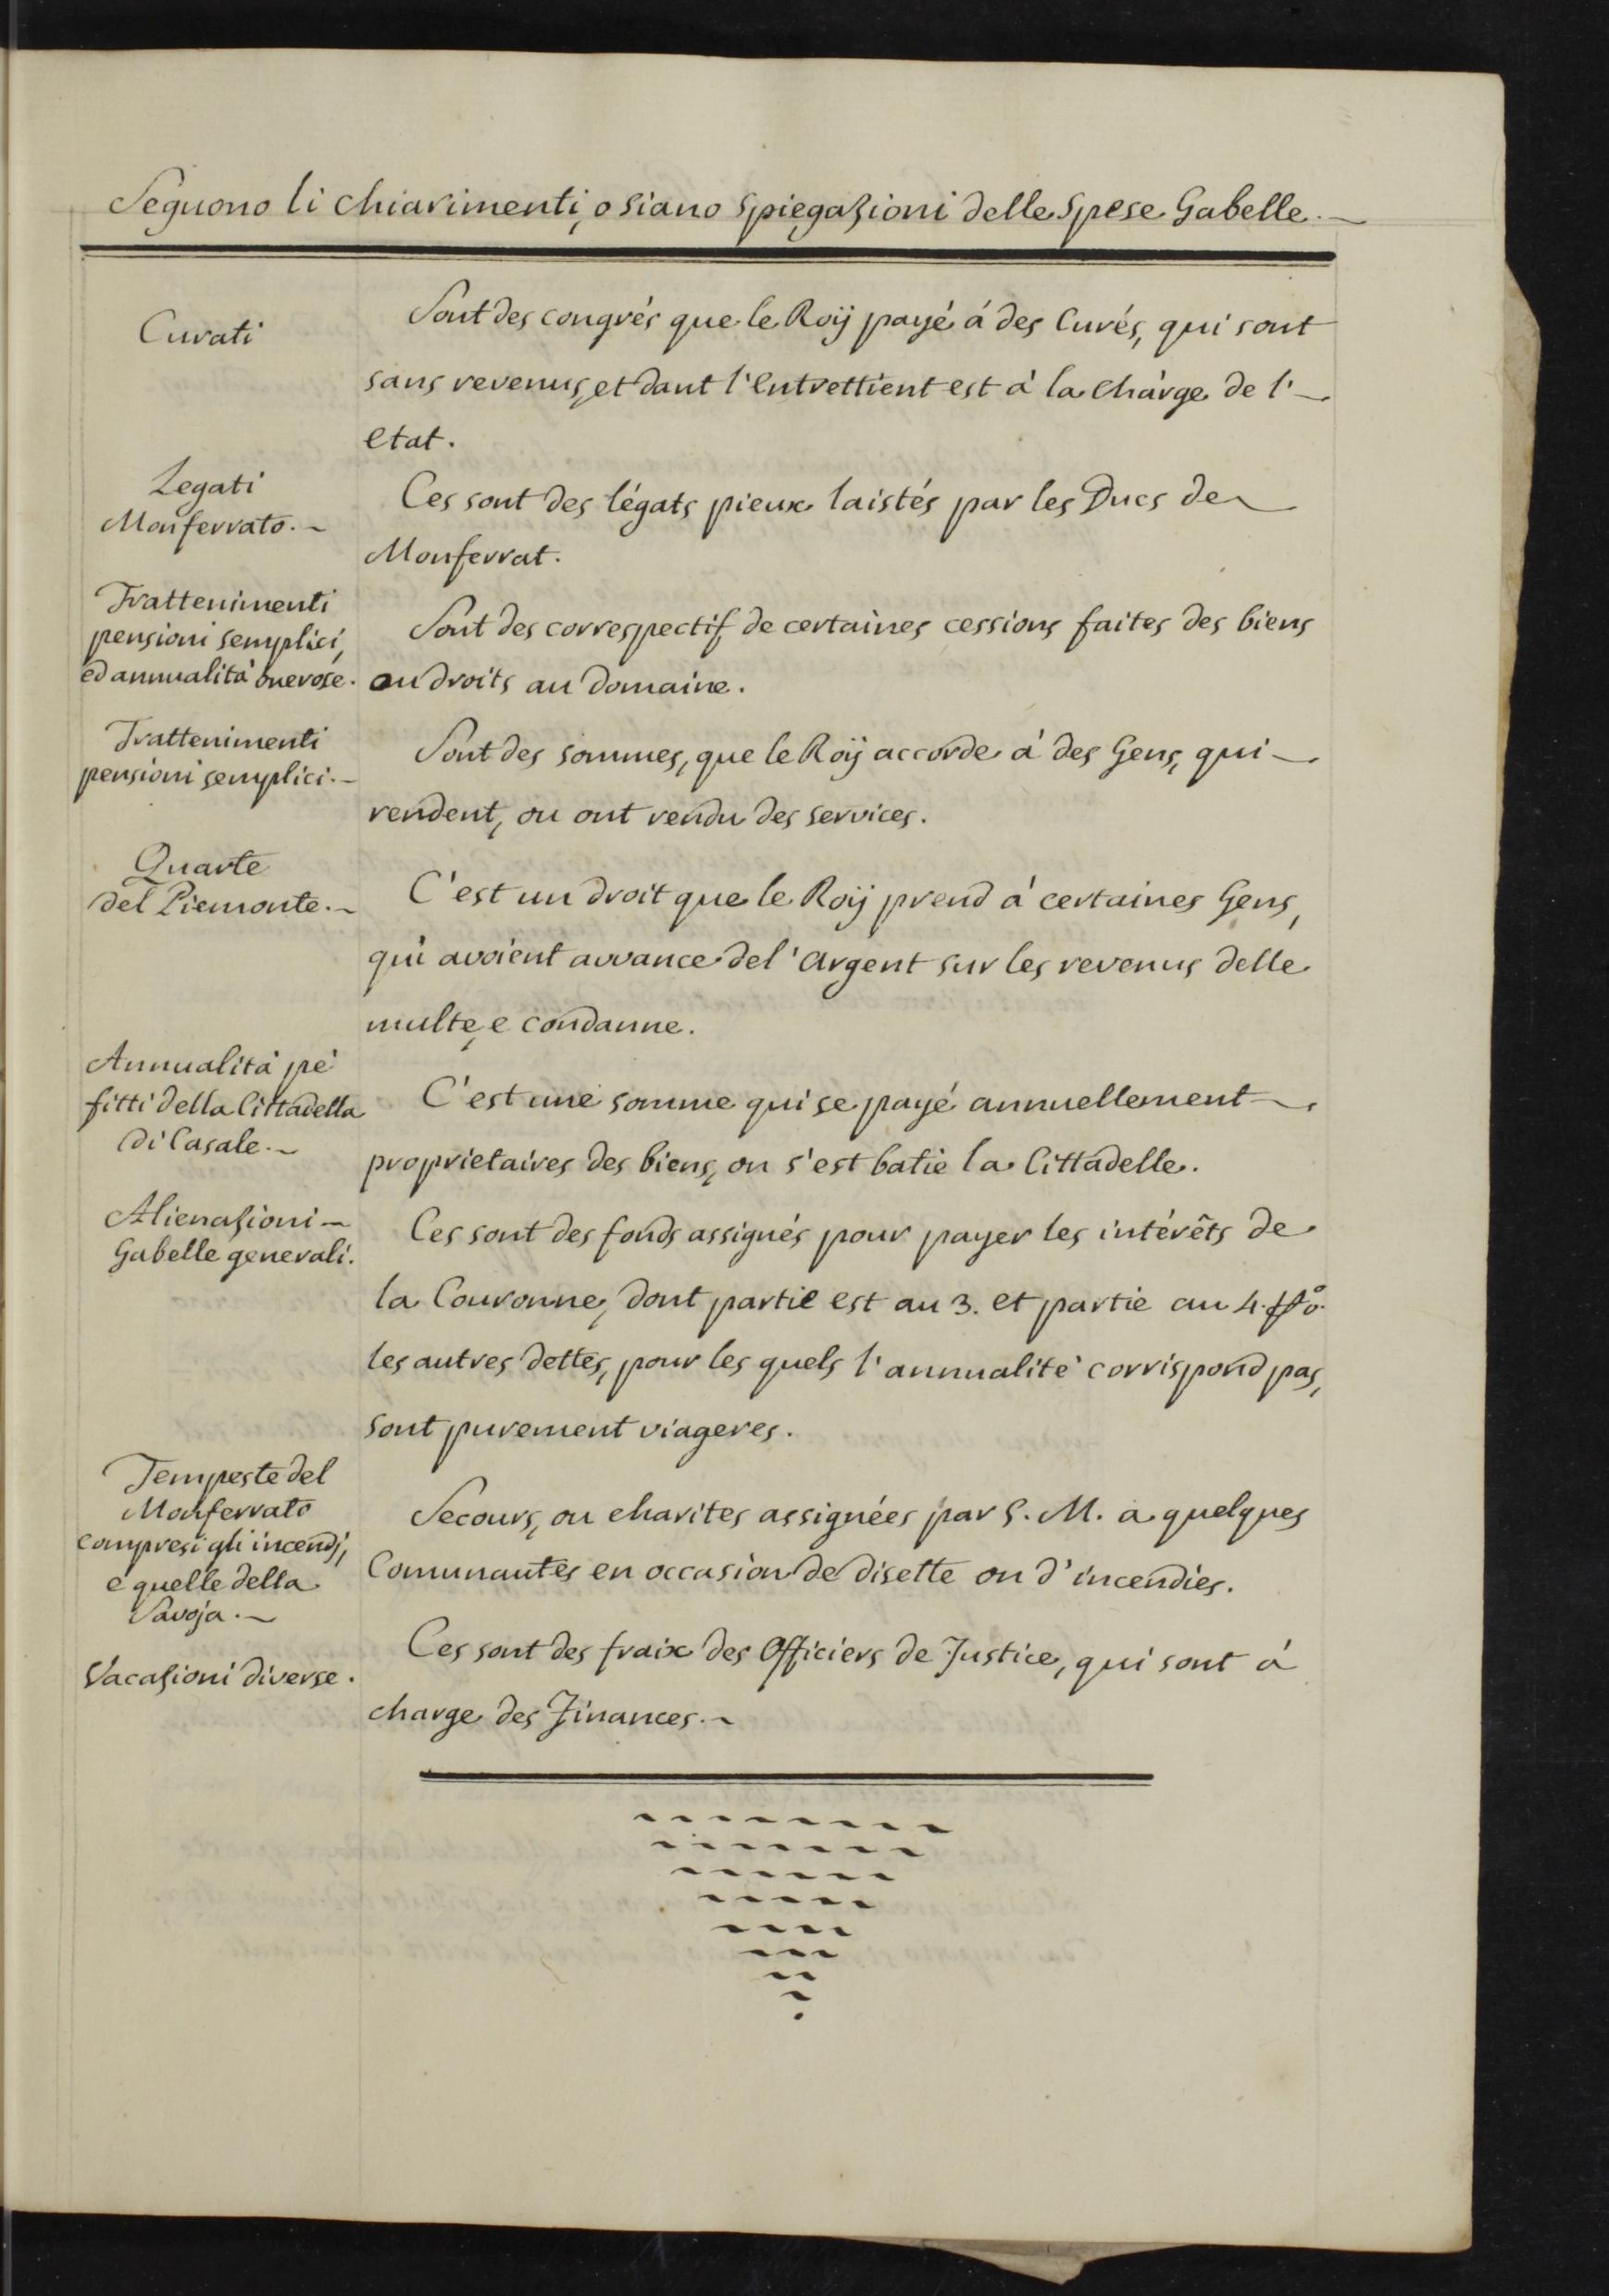 Seguono li chiarimenti, o siano spiegazioni delle Spese Gabelle.
Curati
Sont des congrés que le Roÿ payé á des Curés, qui sont
sans revenus, et dant l'entrettient est à la Chàrge de l'
etat.
Legati
Monferrato.
Ces sont des légats pieux laistés par les Ducs de
Monferrat.
Trattenimenti
pensioni semplici,
ed annualità onerose.
Sont des correspectif de certaines cessions faites des biens
ou droits au domaine.
Trattenimenti
pensioni semplici.
Sont des sommes, que le Roÿ accorde à des Gens, qui
rendent, ou ont rendu des services.
Quarte
del Piemonte.
C'est un droit que le Roÿ prend à certaines Gens,
qui avoient avvance del'argent sur les revenus delle
multe, e condanne.
Annualità pe'
fitti della Cittadella
di Casale.
C'est une somme qui se payé annuellement
proprietaires des biens, ou s'est batie la Cittadelle.
Alienazioni
Gabelle generali.
Ces sont des fonds assignés pour payer les intérêts de
la Couronne, dont partie est au 3. et partie au 4.
les autres dettes, pour les quels l'annualité corrispond pas,
sont purement viageres.
Tempeste del
Monferrato
compresi gli incendj,
e quelle della
Savoja.
Secours, ou charites assignées par S. M. a quelques
Comunautés en occasion de disette ou d'incendies.
Vacazioni diverse.
Ces sont des fraix des Officiers de Justice, qui sont à
charge des Finances.